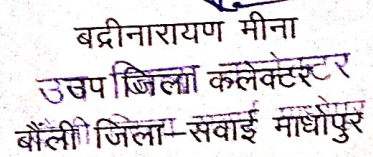 बद्रीनारायण मीना
उप जिला कलेक्टर
बौंली जिला-सवाई माधोपुर